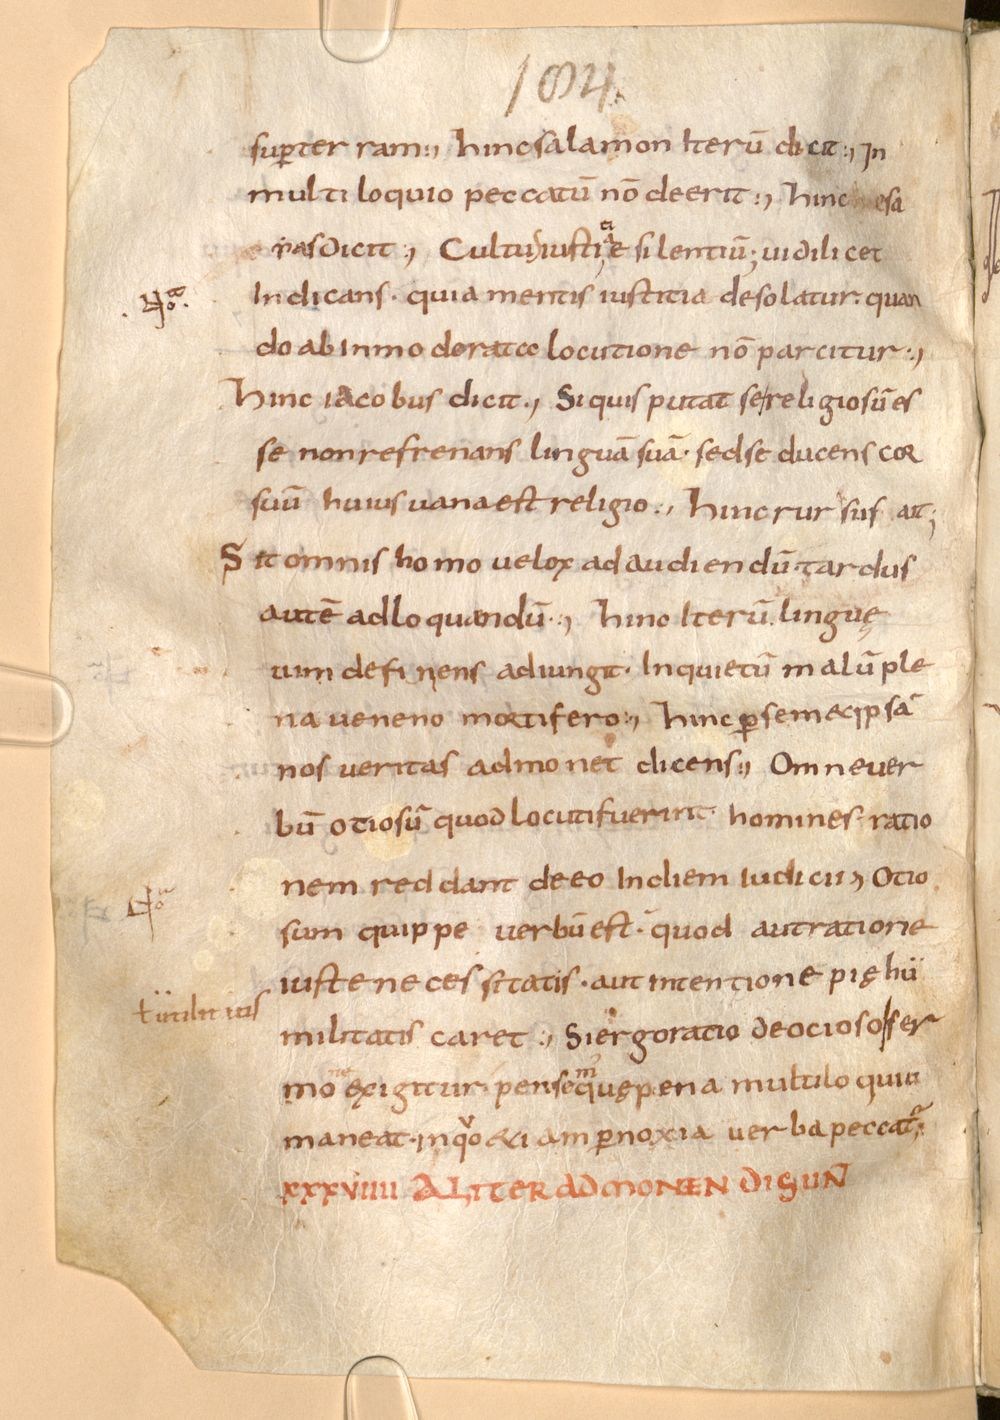 184.
sup̄ter ram:, hinc salamon Iterū dicit:, In
multi loquio peccatū nō deerit:, hinc esa
ias dicit:, Cultus iustitię silentiū; uidilicet
Indicans. quia mentis iustitia desolatur. quan
do ab inmoderate locutione nō parcitur:,
hinc iacobus dicit., Siquis putat se religiosū es
se non refrenans linguā suā. sed seducens cor
suū huius uana est religio:, hinc rursus ait;
Sit omnis homo uelox ad audiendū tardus
autē ad loquendū:, hinc Iterū linguę
uim definens adiungit. Inquietū malū ple
na ueneno mortifero:, hinc p̄ semetipsā
nos ueritas admonet dicens:, Omne uer
bū otiosū quod locuti fuerint homines ratio
nem reddant de eo In diem iudicii, Otio
sum quippe uerbū est. quod aut ratione
iuste necessitatis. aut intentione pię hu
ł utilitatis
militatis caret:, Si ergo ratio de ocioso ser
mone exigitur. pensem quę pena multiloquiu
maneat. in quo etiam p̄ noxia uerba peccat̄:
xxxviiii ALITER ADMONENDI SUN̄